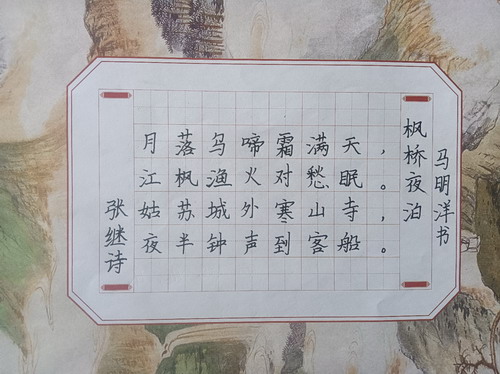 枫桥夜泊
月落乌啼霜满天，
江枫渔火对愁眠。
姑苏城外寒山寺，
夜半钟声到客船。
张继诗
马明洋书